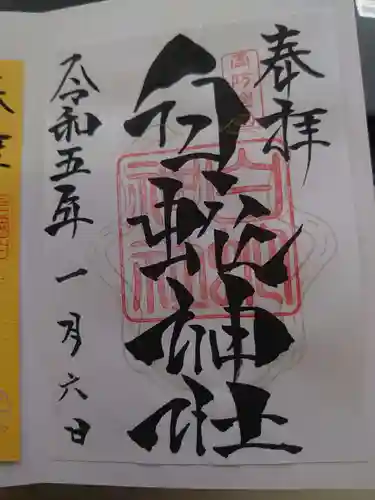 奉拝
白蛇神社
令和五年一月六日